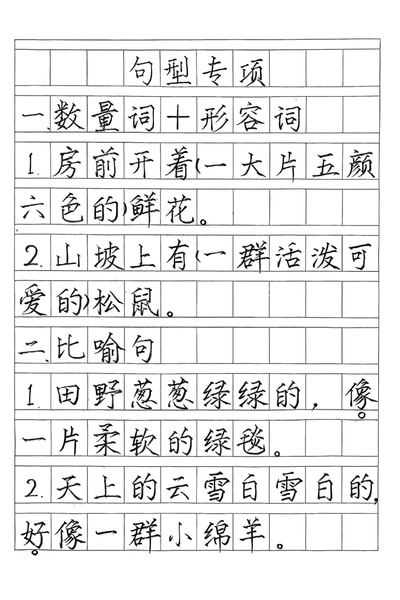 句型专项
一、数量词＋形容词
1.房前开着(一大片五颜
六色的)鲜花。
2.山坡上有(一群活泼可
爱的)松鼠。
二、比喻句
1.田野葱葱绿绿的，像
一片柔软的绿毯。
2.天上的云雪白雪白的,
好像一群小绵羊。